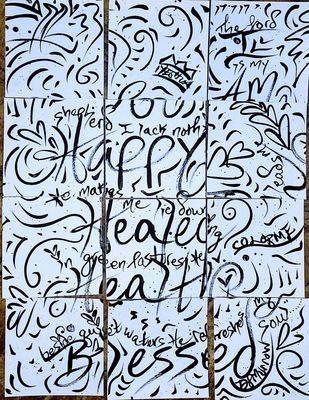 The Lord
I
is my
You
AM
sheph
erd I lack noth
Happy
He makes me lie down
Healed
COLORME
in green pastures He
Health
beside quiet waters He refreshes
my
soul
Blessed